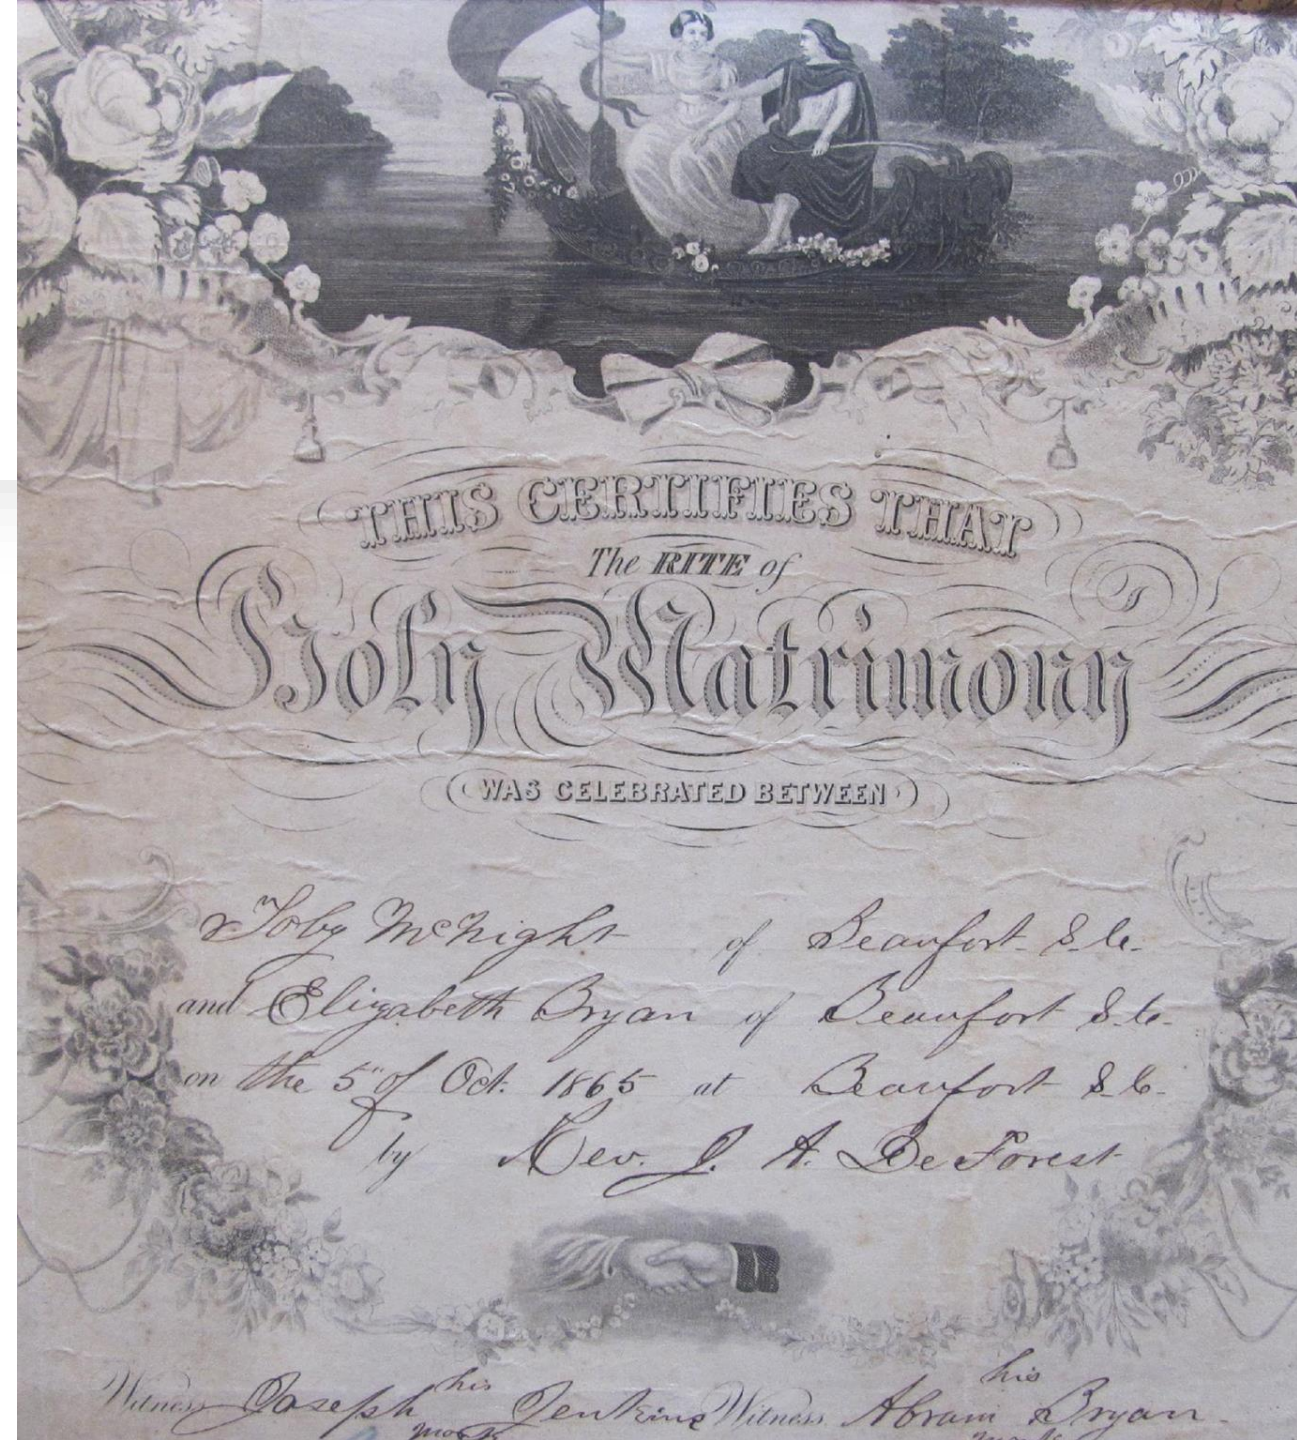 THIS CERTIFIES THAT
The RITE of
Holy Matrimony
WAS CELEBRATED BETWEEN
Toby McNight of Beaufort S.C.
and Elizabeth Bryan of Beaufort S.C.
on the 5" of Oct. 1865 at Beaufort S.C.
by Rev. J. A. DeForest
his his
Witness Joseph Jenkins Witness Abram Bryan
mark mark